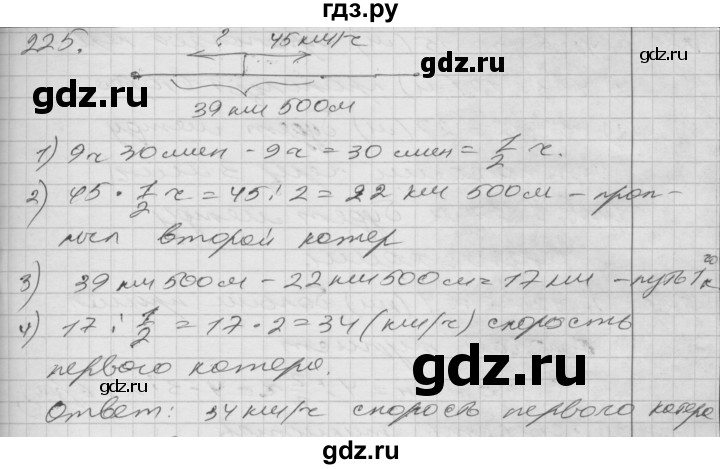 гдз.ру
225.
? 45 км/ч
gdz.ru gdz.ru
39 км 500 м
1) 9ч 30мин - 9ч = 30 мин = 1/2 ч.
2) 45 · 1/2 ч = 45 : 2 = 22 км 500м - проп-
лыл второй катер
3) 39 км 500м - 22 км 500м = 17 км - путь 1го к
4) 17 : 1/2 = 17 · 2 = 34 (км/ч) скорость
первого катера.
gdz.ru gdz.ru
Ответ: 34 км/ч скорость первого катера
gdz.ru